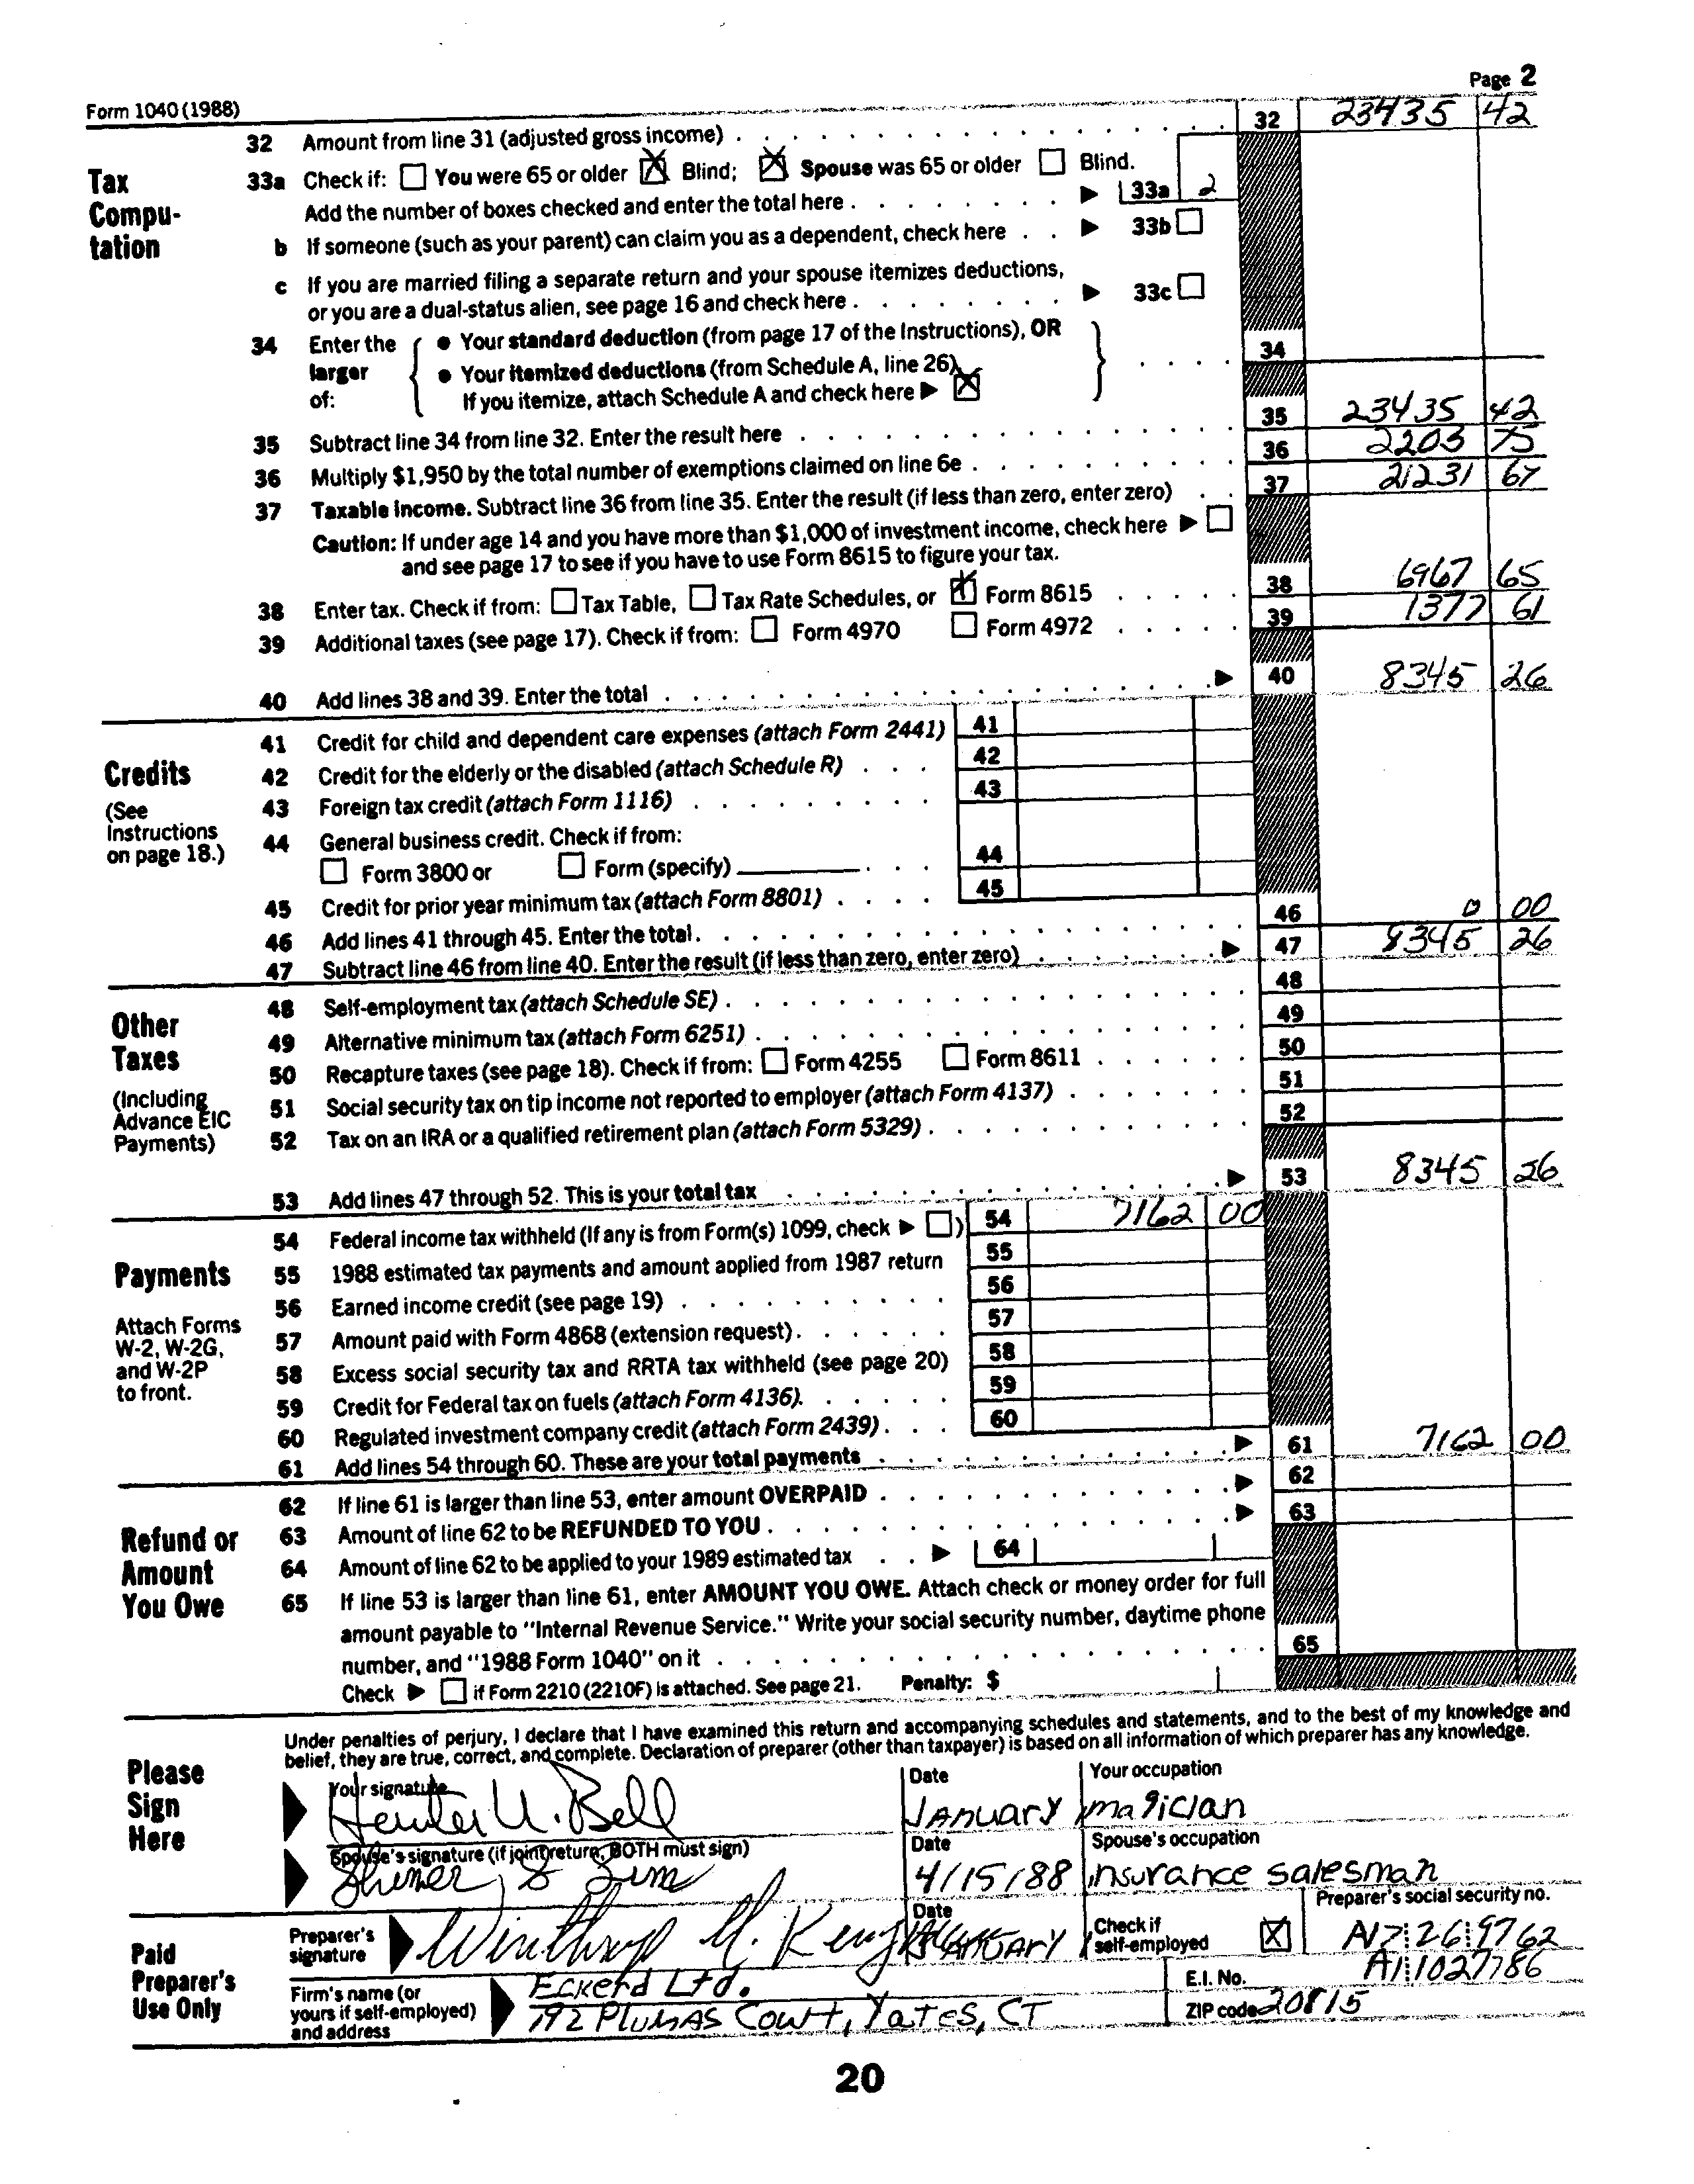 Form 1040 (1988)
Page 2
32 Amount from line 31 (adjusted gross income) 32 23435 42
Tax Compu-tation
33a Check if: You were 65 or older Blind; Spouse was 65 or older Blind.
Add the number of boxes checked and enter the total here 33a 2
b If someone (such as your parent) can claim you as a dependent, check here 33b
c If you are married filing a separate return and your spouse itemizes deductions,
or you are a dual-status alien, see page 16 and check here 33c
34 Enter the larger of:
• Your standard deduction (from page 17 of the Instructions), OR
• Your itemized deductions (from Schedule A, line 26)
If you itemize, attach Schedule A and check here
34
35 Subtract line 34 from line 32. Enter the result here 35 23435 42
36 Multiply $1,950 by the total number of exemptions claimed on line 6e 36 2203 75
37 Taxable income. Subtract line 36 from line 35. Enter the result (if less than zero, enter zero) 37 21231 67
Caution: If under age 14 and you have more than $1,000 of investment income, check here
and see page 17 to see if you have to use Form 8615 to figure your tax.
38 Enter tax. Check if from: Tax Table, Tax Rate Schedules, or Form 8615 38 6967 65
39 Additional taxes (see page 17). Check if from: Form 4970 Form 4972 39 1377 61
40 Add lines 38 and 39. Enter the total 40 8345 26
Credits
(See Instructions on page 18.)
41 Credit for child and dependent care expenses (attach Form 2441) 41
42 Credit for the elderly or the disabled (attach Schedule R) 42
43 Foreign tax credit (attach Form 1116) 43
44 General business credit. Check if from:
Form 3800 or Form (specify) 44
45 Credit for prior year minimum tax (attach Form 8801) 45
46 Add lines 41 through 45. Enter the total. 46 0 00
47 Subtract line 46 from line 40. Enter the result (if less than zero, enter zero) 47 8345 26
Other Taxes
(Including Advance EIC Payments)
48 Self-employment tax (attach Schedule SE) 48
49 Alternative minimum tax (attach Form 6251) 49
50 Recapture taxes (see page 18). Check if from: Form 4255 Form 8611 50
51 Social security tax on tip income not reported to employer (attach Form 4137) 51
52 Tax on an IRA or a qualified retirement plan (attach Form 5329) 52
53 Add lines 47 through 52. This is your total tax 53 8345 26
Payments
Attach Forms W-2, W-2G, and W-2P to front.
54 Federal income tax withheld (If any is from Form(s) 1099, check ) 54 7162 00
55 1988 estimated tax payments and amount applied from 1987 return 55
56 Earned income credit (see page 19) 56
57 Amount paid with Form 4868 (extension request) 57
58 Excess social security tax and RRTA tax withheld (see page 20) 58
59 Credit for Federal tax on fuels (attach Form 4136) 59
60 Regulated investment company credit (attach Form 2439) 60
61 Add lines 54 through 60. These are your total payments 61 7162 00
Refund or Amount You Owe
62 If line 61 is larger than line 53, enter amount OVERPAID 62
63 Amount of line 62 to be REFUNDED TO YOU 63
64 Amount of line 62 to be applied to your 1989 estimated tax 64
65 If line 53 is larger than line 61, enter AMOUNT YOU OWE. Attach check or money order for full
amount payable to "Internal Revenue Service." Write your social security number, daytime phone
number, and "1988 Form 1040" on it 65
Check if Form 2210 (2210F) is attached. See page 21. Penalty: $
Under penalties of perjury, I declare that I have examined this return and accompanying schedules and statements, and to the best of my knowledge and
belief, they are true, correct, and complete. Declaration of preparer (other than taxpayer) is based on all information of which preparer has any knowledge.
Please Sign Here
Your signature U. Bell
Date January
Your occupation magician
Spouse's signature (if joint return, BOTH must sign)
Date 4/15/88
Spouse's occupation insurance salesman
Paid Preparer's Use Only
Preparer's signature Winthrop M.
Date January
Check if self-employed X
Preparer's social security no. A17 26 9762
Firm's name (or yours if self-employed) and address
Eckerd Ltd.
792 Plumas Court, Yates, CT
E.I. No. A1 1027786
ZIP code 20815
20